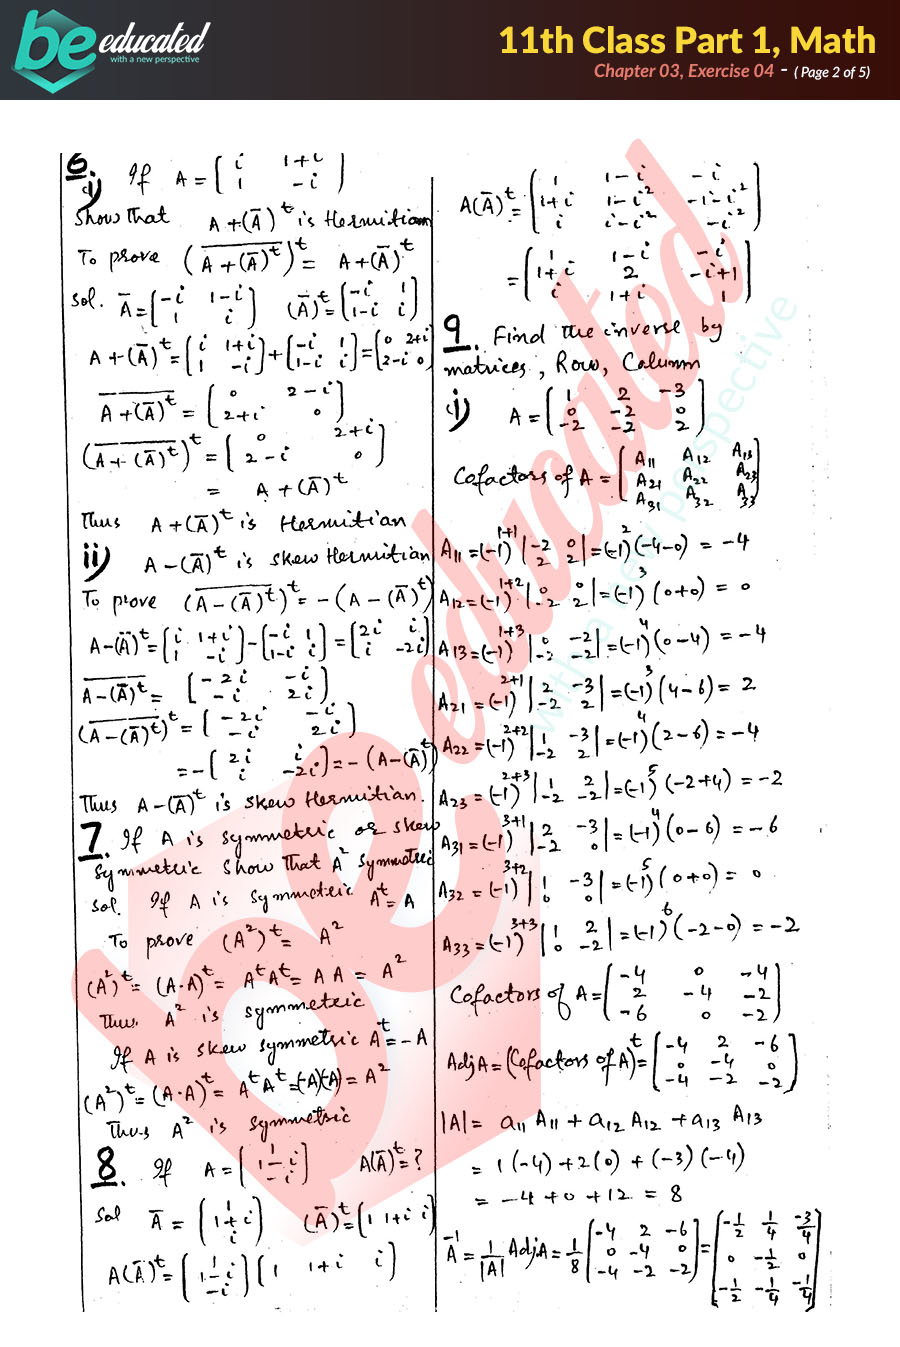 be educated
with a new perspective
11th Class Part 1, Math
Chapter 03, Exercise 04 - ( Page 2 of 5)
6.
i) If A = [i 1+i; 1 -i]
Show that A+(Ā)^t is Hermitian
To prove (\overline{A+(Ā)^t})^t = A+(Ā)^t
Sol. Ā = [-i 1-i; 1 i] (Ā)^t = [-i 1; 1-i i]
A+(Ā)^t = [i 1+i; 1 -i] + [-i 1; 1-i i] = [0 2+i; 2-i 0]
\overline{A+(Ā)^t} = [0 2-i; 2+i 0]
(\overline{A+(Ā)^t})^t = [0 2+i; 2-i 0]
= A+(Ā)^t
Thus A+(Ā)^t is Hermitian
ii) A-(Ā)^t is skew Hermitian
To prove (\overline{A-(Ā)^t})^t = -(A-(Ā)^t)
A-(Ā)^t = [i 1+i; 1 -i] - [-i 1; 1-i i] = [2i i; i -2i]
\overline{A-(Ā)^t} = [-2i -i; -i 2i]
(\overline{A-(Ā)^t})^t = [-2i -i; -i 2i]
= -[2i i; i -2i] = -(A-(Ā)^t)
Thus A-(Ā)^t is skew Hermitian.
7. If A is symmetric or skew
symmetric show that A² symmetric
Sol. If A is symmetric A^t = A
To prove (A²)^t = A²
(A²)^t = (A·A)^t = A^t A^t = A A = A²
Thus A² is symmetric
If A is skew symmetric A^t = -A
(A²)^t = (A·A)^t = A^t A^t = (-A)(-A) = A²
Thus A² is symmetric
8. If A = [1; 1-i; -i] A(Ā)^t = ?
Sol Ā = [1; 1+i; i] (Ā)^t = [1 1+i i]
A(Ā)^t = [1; 1-i; -i] [1 1+i i]
A(Ā)^t = [1 1-i -i; 1+i 1-i² -i-i²; i i-i² -i²]
= [1 1-i -i; 1+i 2 -i+1; i 1+i 1]
9. Find the inverse by
matrices, Row, Column
i) A = [1 2 -3; 0 -2 0; -2 -2 2]
Cofactors of A = [A11 A12 A13; A21 A22 A23; A31 A32 A33]
A11 = (-1)^{1+1} |-2 0; 2 2| = (-1)^2 (-4-0) = -4
A12 = (-1)^{1+2} |0 0; -2 2| = (-1)^3 (0+0) = 0
A13 = (-1)^{1+3} |0 -2; -2 -2| = (-1)^4 (0-4) = -4
A21 = (-1)^{2+1} |2 -3; -2 2| = (-1)^3 (4-6) = 2
A22 = (-1)^{2+2} |1 -3; -2 2| = (-1)^4 (2-6) = -4
A23 = (-1)^{2+3} |1 2; -2 -2| = (-1)^5 (-2+4) = -2
A31 = (-1)^{3+1} |2 -3; -2 0| = (-1)^4 (0-6) = -6
A32 = (-1)^{3+2} |1 -3; 0 0| = (-1)^5 (0+0) = 0
A33 = (-1)^{3+3} |1 2; 0 -2| = (-1)^6 (-2-0) = -2
Cofactors of A = [-4 0 -4; 2 -4 -2; -6 0 -2]
Adj A = (Cofactors of A)^t = [-4 2 -6; 0 -4 0; -4 -2 -2]
|A| = a11 A11 + a12 A12 + a13 A13
= 1(-4) + 2(0) + (-3)(-4)
= -4+0+12 = 8
A^{-1} = 1/|A| Adj A = 1/8 [-4 2 -6; 0 -4 0; -4 -2 -2] = [-1/2 1/4 -3/4; 0 -1/2 0; -1/2 -1/4 -1/4]
be educated
with a new perspective